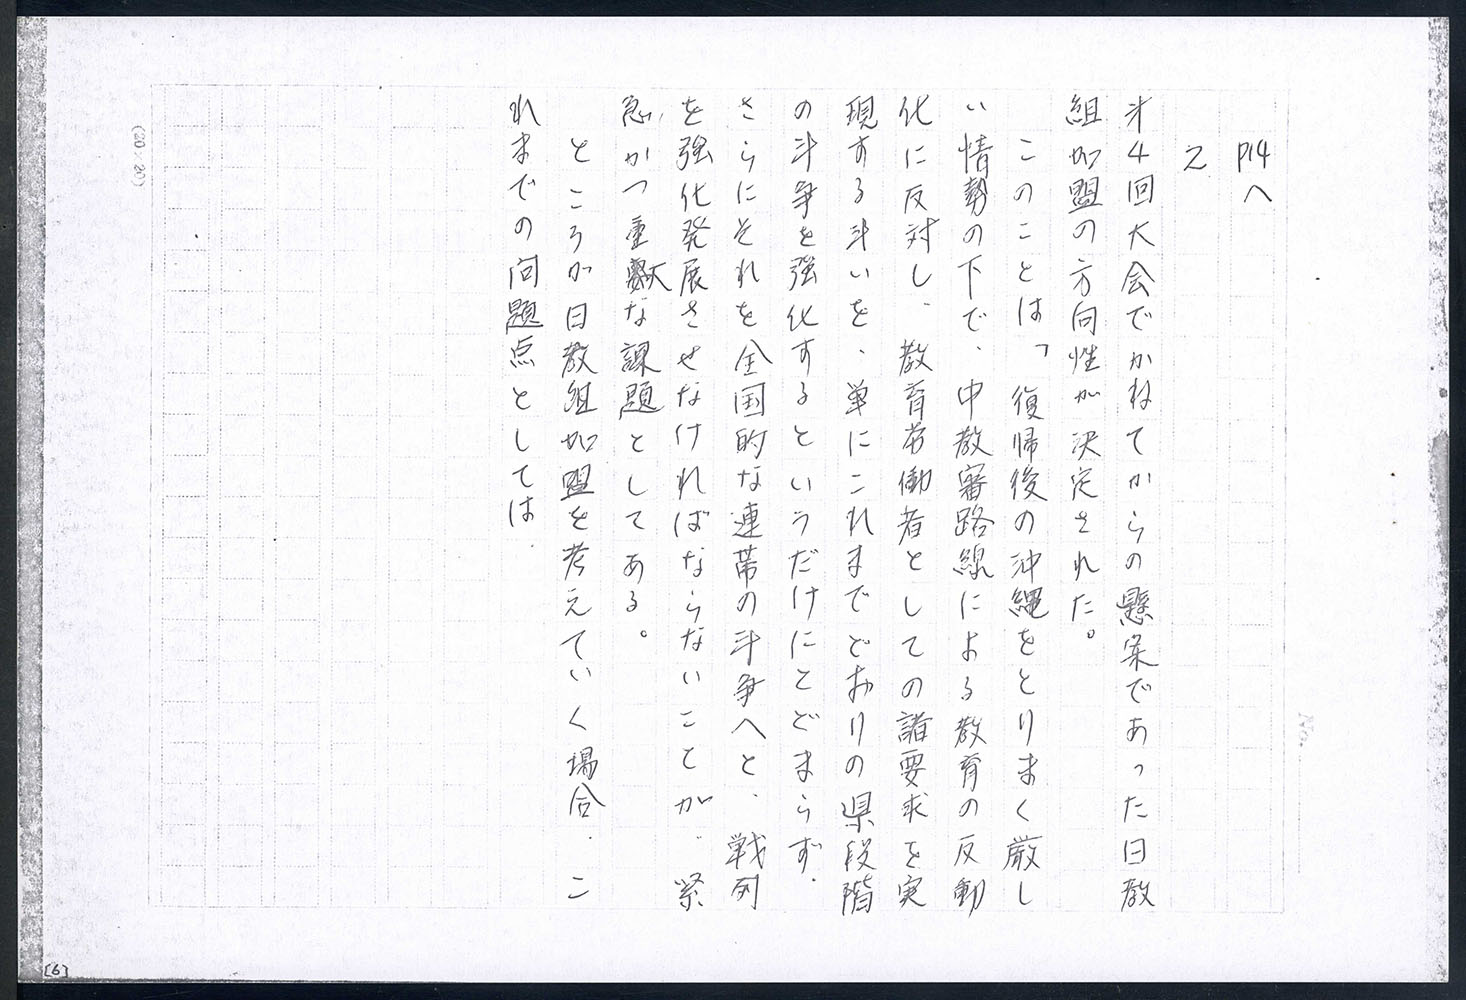 P14へ
2
才4回大会でかねてからの懸案であった日教
組加盟の方向性が決定された。
このことは、「復帰後の沖縄をとりまく厳し
い情勢の下で、中教審路線による教育の反動
化に反対し、教育労働者としての諸要求を実
現する斗いを、単にこれまでどおりの県段階
の斗争を強化するというだけにとどまらず、
さらにそれを全国的な連帯の斗争へと、戦列
を強化発展させなければならないことが、緊
急かつ重大な課題としてある。
ところが日教組加盟を考えていく場合、こ
れまでの問題点としては、
(20×20)
No.
[6]